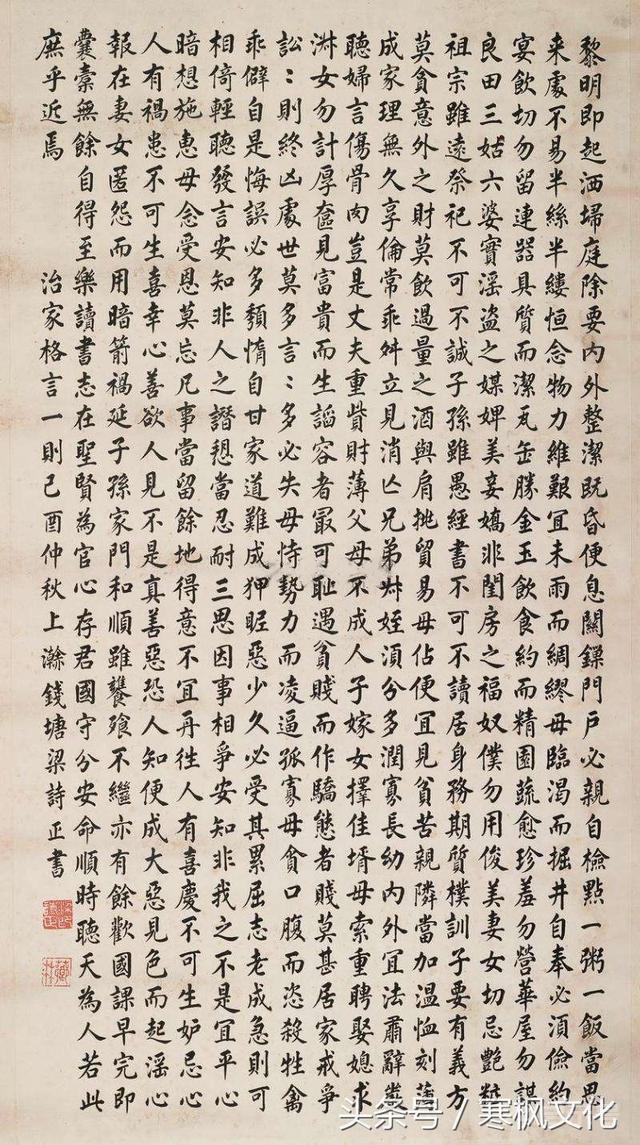 黎明即起洒埽庭除要内外整潔既昏便息關鏁門戶必親自檢點一粥一飯當思
来處不易半絲半縷恒念物力維艱宜未雨而綢繆毋臨渴而掘井自奉必湏儉約
宴飲切勿留連器具質而潔瓦缶勝金玉飲食約而精園蔬愈珍羞勿營華屋勿謀
良田三姑六婆實滛盜之媒婢美妾嬌非閨房之福奴僕勿用俊美妻女切忌艷粧
祖宗雖遠祭祀不可不誠子孫雖愚經書不可不讀居身務期質樸訓子要有義方
莫貪意外之財莫飲過量之酒與肩挑貿易毋佔便宜見貧苦親隣當加温恤刻薄
成家理無久享倫常乖舛立見消亾兄弟叔姪湏分多潤寡長幼内外宜法肅辭嚴
聽婦言傷骨肉豈是丈夫重貲財薄父母不成人子嫁女擇佳壻毋索重聘娶媳求
淑女勿計厚奩見富貴而生謟容者冣可耻遇貧賤而作驕態者賤莫甚居家戒爭
訟:則終凶處世莫多言:多必失毋恃勢力而凌逼孤寡毋貪口腹而恣殺牲禽
乖僻自是悔誤必多頽惰自甘家道難成狎昵惡少久必受其累屈志老成急則可
相倚輕聽發言安知非人之譖愬當忍耐三思因事相爭安知非我之不是宜平心
暗想施惠毋念受恩莫忘凡事當留餘地得意不宜再徃人有喜慶不可生妒忌心
人有禍患不可生喜幸心善欲人見不是真善惡恐人知便成大惡見色而起滛心
報在妻女匿怨而用暗箭禍延子孫家門和順雖饔飱不繼亦有餘歡國課早完即
囊橐無餘自得至樂讀書志在聖賢為官心存君國守分安命順時聽天為人若此
庶乎近焉 治家格言一則己酉仲秋上澣錢塘梁詩正書
头条号/寒枫文化